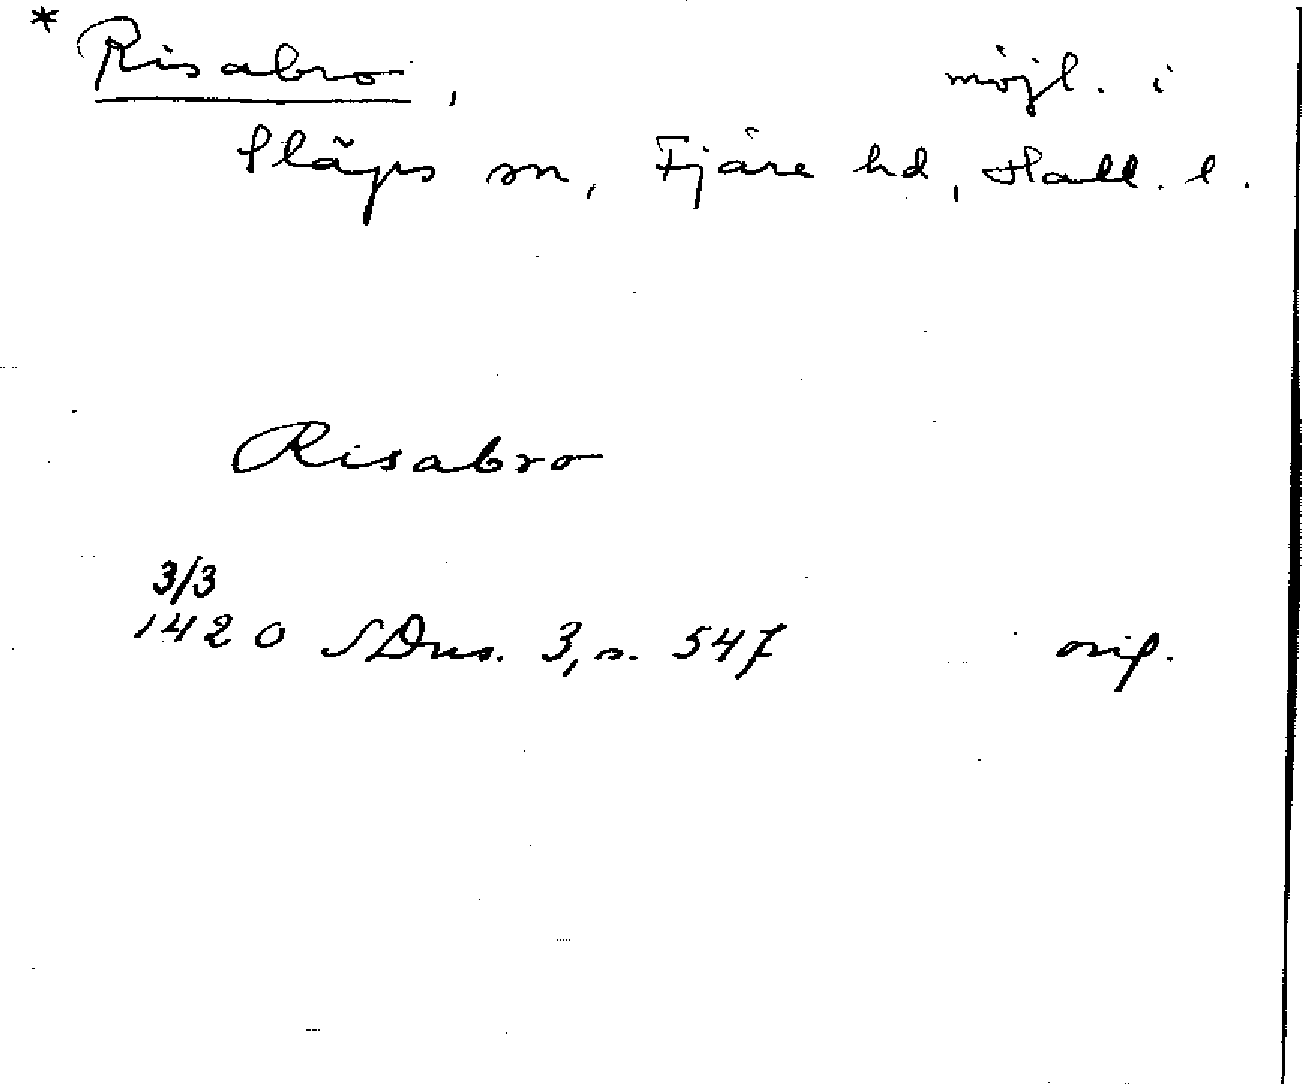 * Risabro, möjl. i
Släps sn, Fjäre hd, Hall. l.
Risabro
3/3
1420 SDns. 3, s. 547 orig.